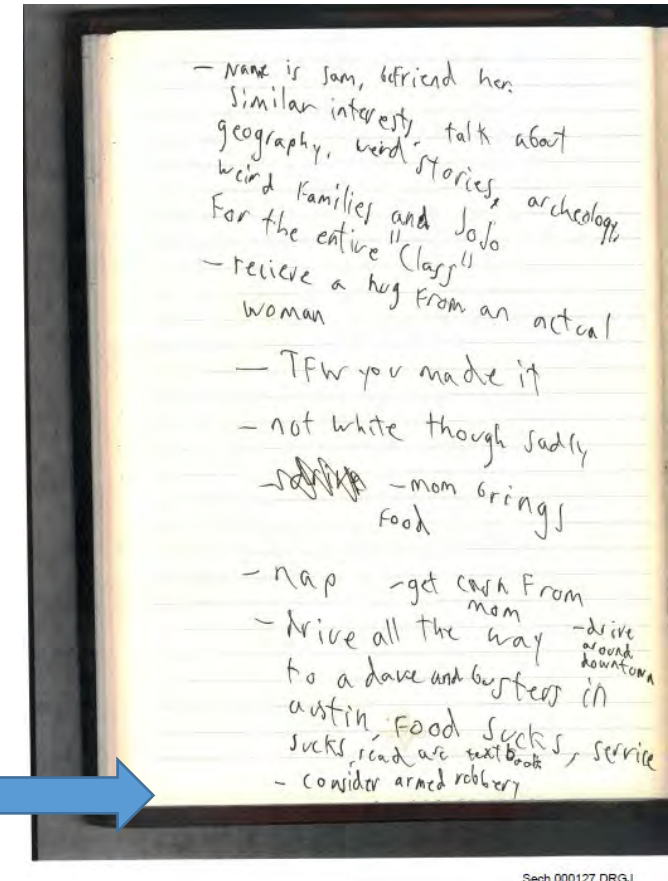 - Name is Sam, befriend her.
Similar interests, talk about
geography, weird stories, archeology,
weird families and JoJo
For the entire "Class"
- recieve a hug from an actual
woman
- TFW you made it
- not white though sadly
- mom brings
Food
- nap - get cash From
mom
- drive all the way - drive
around
downtown
to a dave and busters in
austin, Food Sucks, service
sucks, read arc textbook
- consider armed robbery
Sech 000127 DRGJ